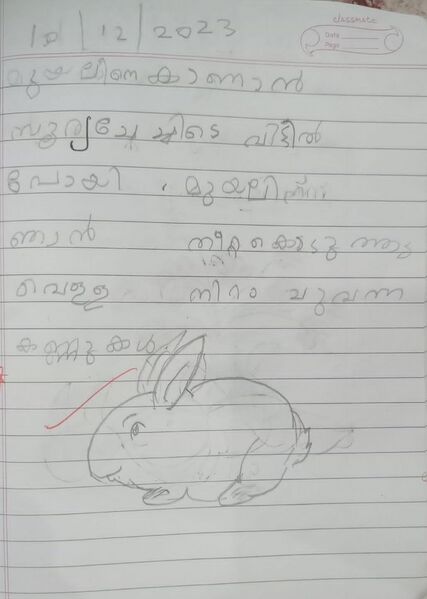 10/12/2023
classmate
Date
Page
മുയലിനെ കാണാൻ
സൂര്യ ചേച്ചിടെ വീട്ടിൽ
പോയി. മുയലിന്
ഞാൻ തീറ്റ കൊടുത്തു
വെള്ള നിറം ചുവന്ന
കണ്ണുകൾ